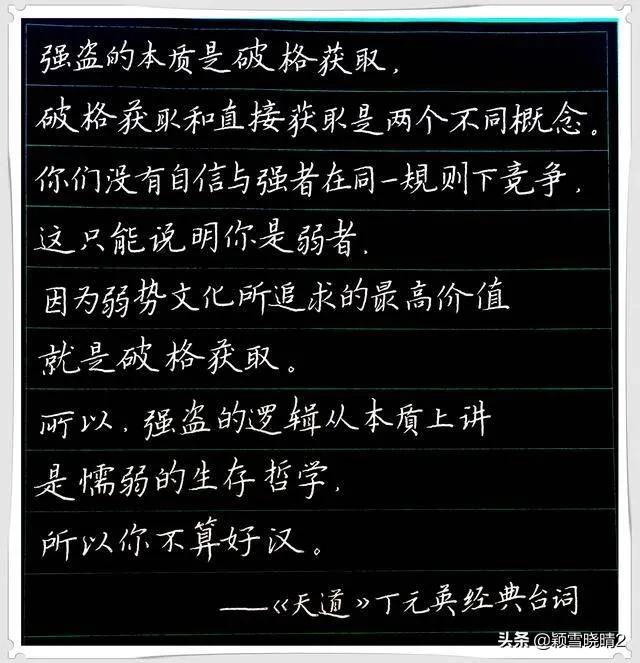 强盗的本质是破格获取，
破格获取和直接获取是两个不同概念。
你们没有自信与强者在同一规则下竞争，
这只能说明你是弱者，
因为弱势文化所追求的最高价值
就是破格获取。
所以，强盗的逻辑从本质上讲
是懦弱的生存哲学，
所以你不算好汉。
——《天道》丁元英经典台词
头条 @颖雪晓晴2